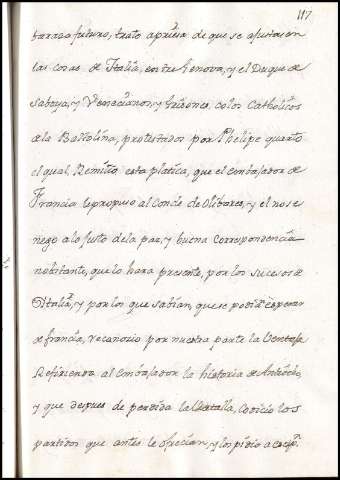 117
barazo futuro, trato aprissa de que se ajustasen
las cosas de Italia, entre Genova, y el Duque de
Saboya, y Venecianos, y Grisones, co los Catholicos
de la Baltolina, protestados por Phelipe quarto
el qual, Remitio esta platica, que el embajador de
Francia le propuso al Conde de Olibares, y el no se
nego a lo justo de la paz, y buena Correspondencia
nobstante, que lo hara presente, por los sucesos de
Italia, y por los que sabian, que se podian esperar
de francia, reconocio por nuestra parte la Ventaja
Refiriendo al embajador la historia de Antioco,
y que despues de perdida la Batalla, Codicio los
partidos que antes le ofrecian, y los pidio a